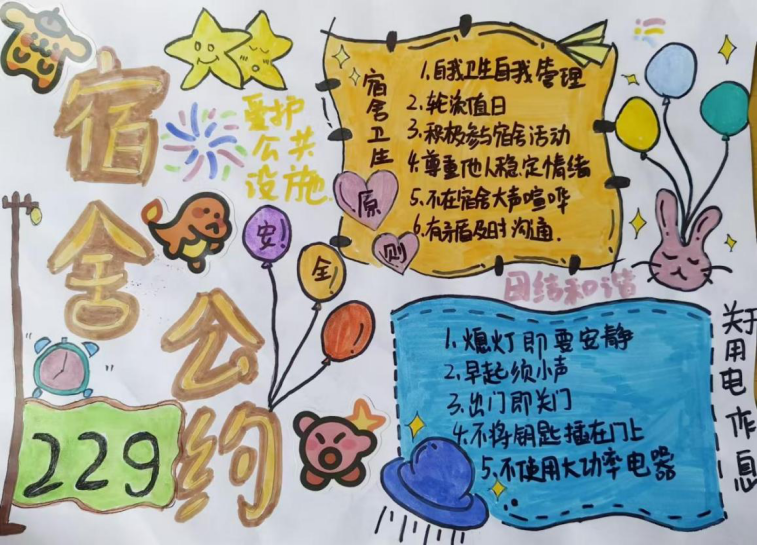 宿舍公约
229
爱护
公共
设施
安!
全!
宿舍卫生
原则
1.自我卫生自我管理
2.轮流值日
3.积极参与宿舍活动
4.尊重他人稳定情绪
5.不在宿舍大声喧哗
6.有矛盾及时沟通.
团结和谐
关于用电作息
1.熄灯即要安静
2.早起须小声
3.出门即关门
4.不将钥匙插在门上
5.不使用大功率电器